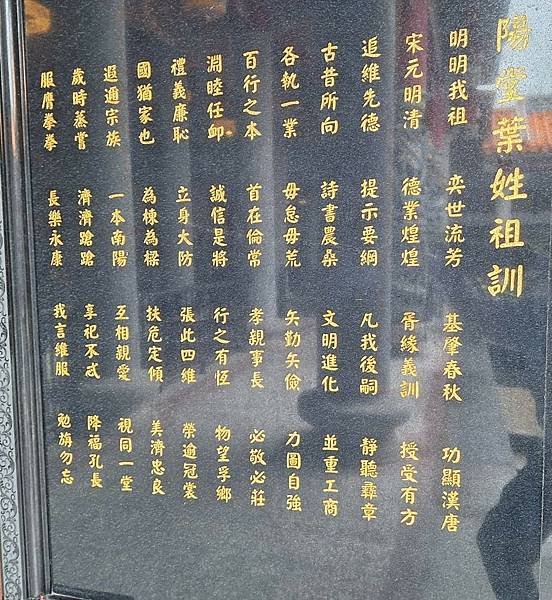 陽堂葉姓祖訓
明明我祖 奕世流芳 基肇春秋 功顯漢唐
宋元明清 德業煌煌 胥緣義訓 授受有方
追維先德 提示要綱 凡我後嗣 靜聽彝章
古昔所向 詩書農桑 文明進化 並重工商
各執一業 毋怠毋荒 矢勤矢儉 力圖自強
百行之本 首在倫常 孝親事長 必敬必莊
淵睦任卹 誠信是將 行之有恆 物望孚鄉
禮義廉恥 立身大防 張此四維 榮逾冠裳
國猶家也 為棟為樑 扶危定傾 美濟忠良
遐邇宗族 一本南陽 互相親愛 視同一堂
歲時蒸嘗 濟濟蹌蹌 享祀不忒 降福孔長
服膺拳拳 長樂永康 我言維服 勉旃勿忘